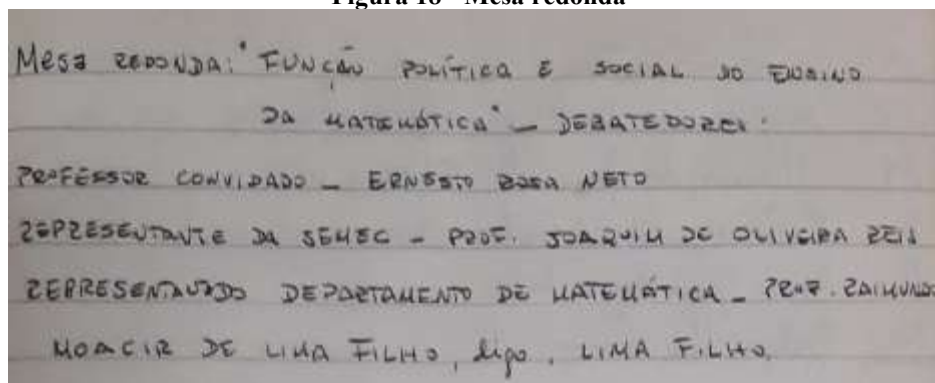 Figura 18 - Mesa redonda
Mesa REDONDA: "FUNÇÃO POLÍTICA E SOCIAL DO ENSINO
DA MATEMÁTICA" - DEBATEDORES:
PROFESSOR CONVIDADO - ERNESTO ROSA NETO
REPRESENTANTE DA SEMEC - PROF. JOAQUIM DE OLIVEIRA REIS
REPRESENTANDO DEPARTAMENTO DE MATEMÁTICA - PROF. RAIMUNDO
MOACIR DE LIMA FILHO, digo, LIMA FILHO,